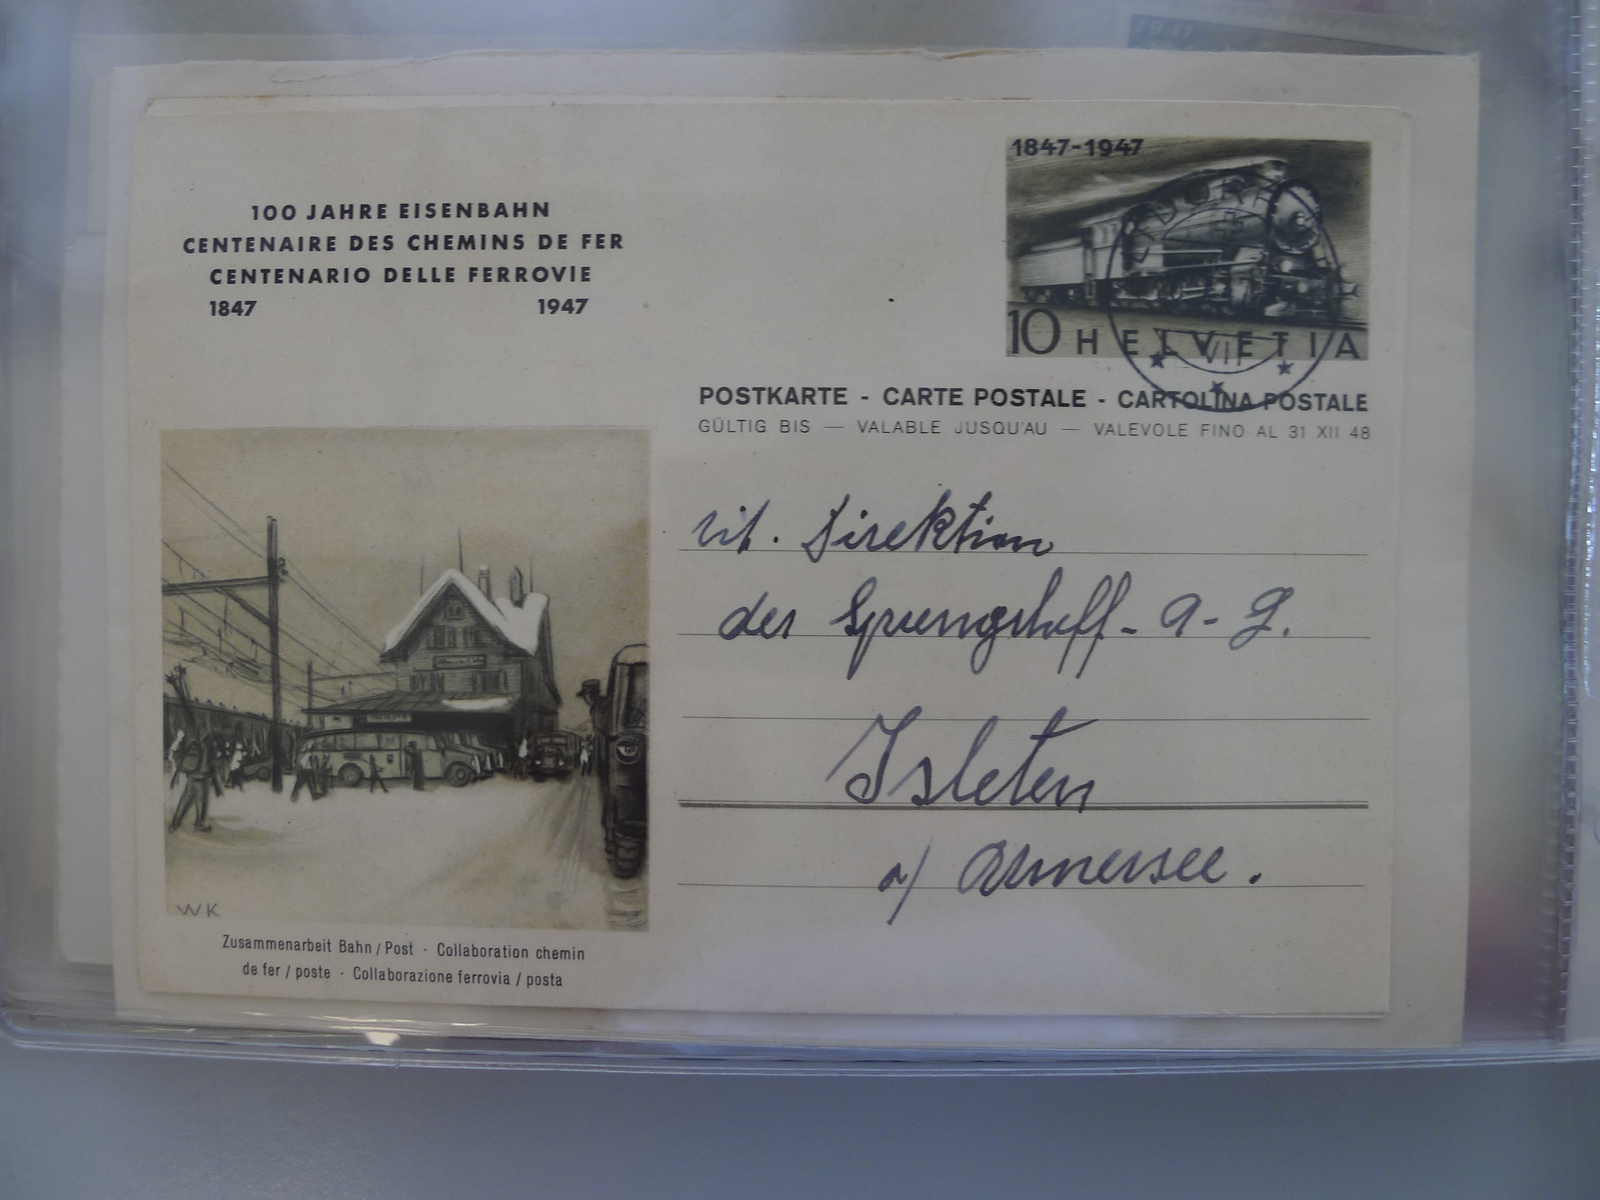 100 JAHRE EISENBAHN
CENTENAIRE DES CHEMINS DE FER
CENTENARIO DELLE FERROVIE
1847 1947
1847-1947
10 HELVETIA
VII
POSTKARTE - CARTE POSTALE - CARTOLINA POSTALE
GÜLTIG BIS — VALABLE JUSQU'AU — VALEVOLE FINO AL 31 XII 48
Tit. Direktion
der Sprengstoff-A-G.
Isleten
a/ Urnersee.
WK
Zusammenarbeit Bahn / Post · Collaboration chemin
de fer / poste · Collaborazione ferrovia / posta